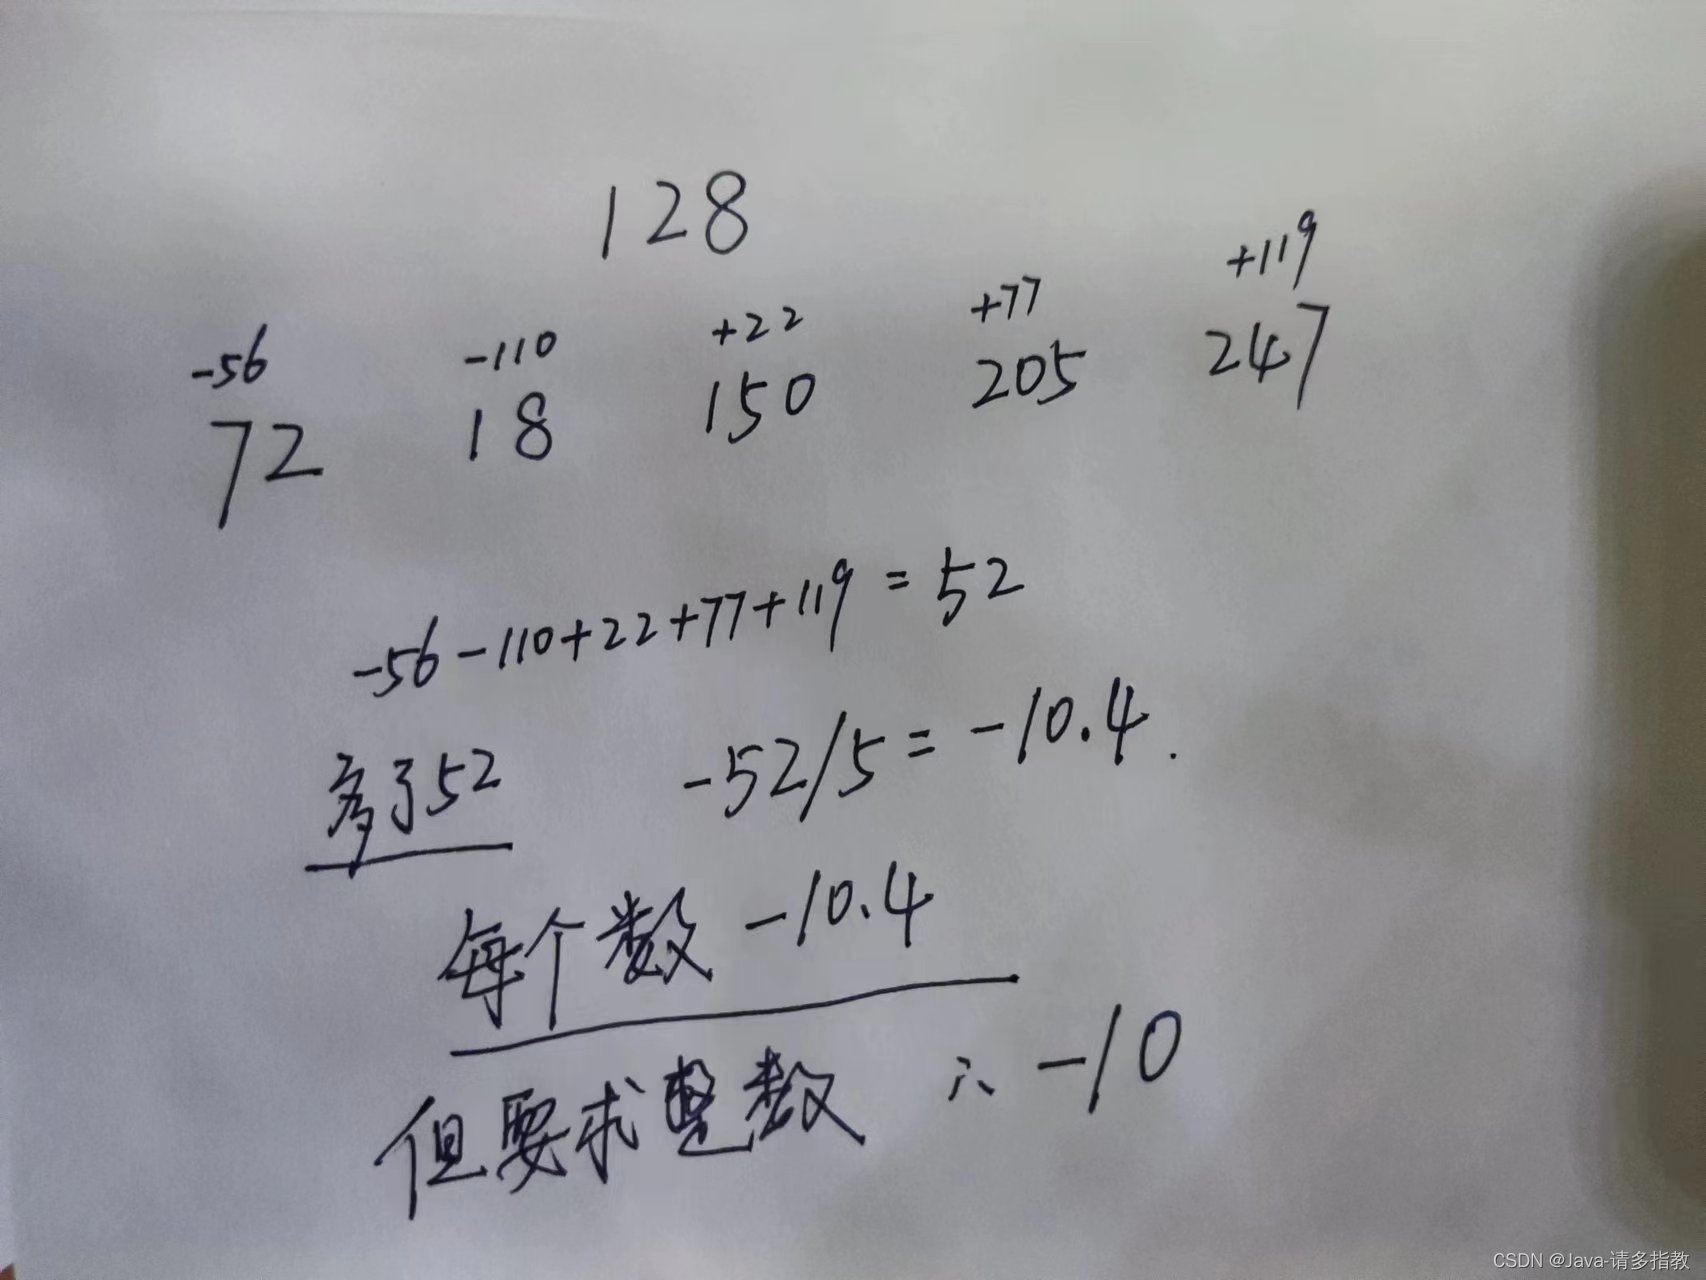 128
-56 -110 +22 +77 +119
72 18 150 205 247
-56-110+22+77+119=52
多了52 -52/5=-10.4.
每个数 -10.4
但要求整数 ∴ -10
CSDN @Java-请多指教